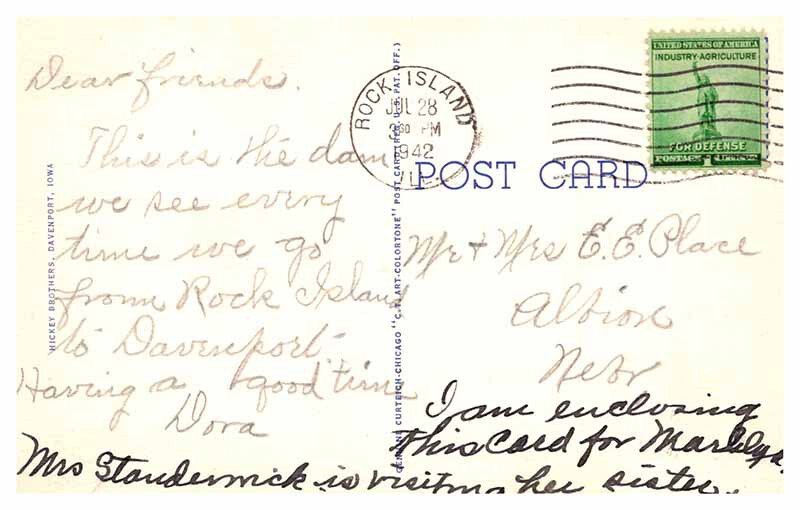 Dear friends.
This is the dam
we see every
time we go
from Rock Island
to Davenport
Having a good time
Dora
HICKEY BROTHERS, DAVENPORT, IOWA
GENUINE CURTEICH-CHICAGO "C.T. ART-COLORTONE" POST CARD (REG. U.S. PAT. OFF.)
ROCK ISLAND
JUL 28
PM
1942
ILL.
UNITED STATES OF AMERICA
INDUSTRY·AGRICULTURE
FOR DEFENSE
POSTAGE 1
POST CARD
Mr + Mrs E. E. Place
Albion
Nebr
I am enclosing
this card for
Mrs is visiting her sister.